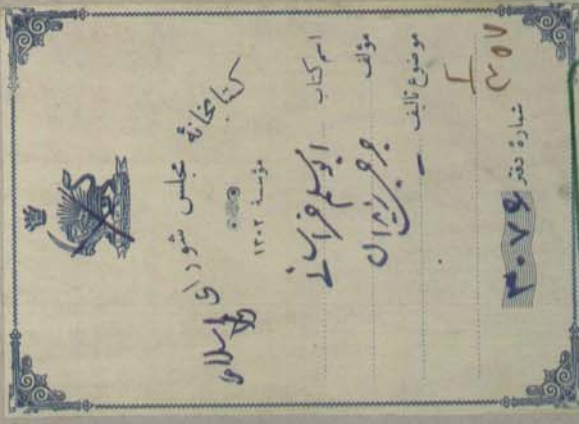 کتابخانهٔ مجلس شورای اسلامی
مؤسسهٔ ۱۳۰۲
اسم کتاب ابومسلم خراسانی
مؤلف جرجی زیدان
موضوع تألیف
شمارهٔ دفتر ۳۰۷۶